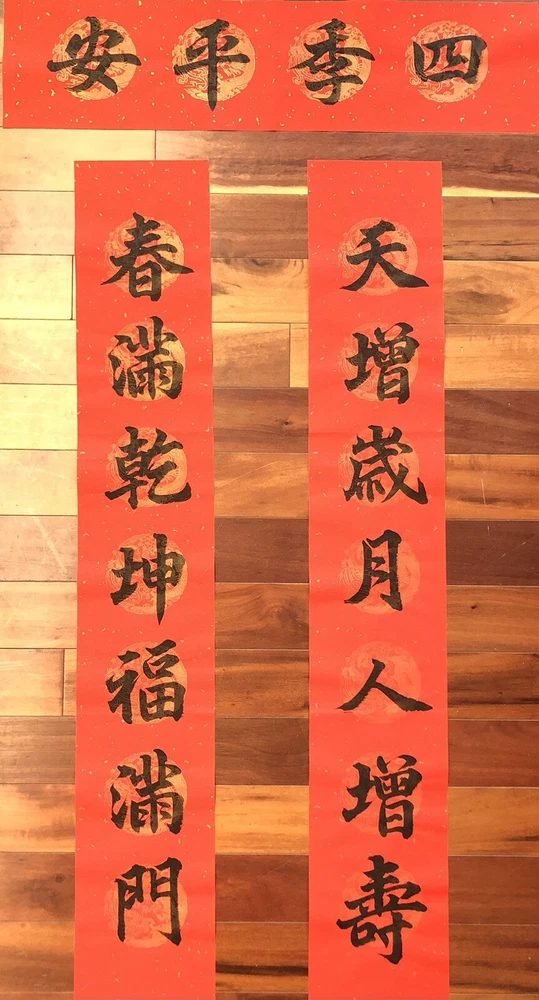 四季平安
天增歲月人增壽
春滿乾坤福滿門